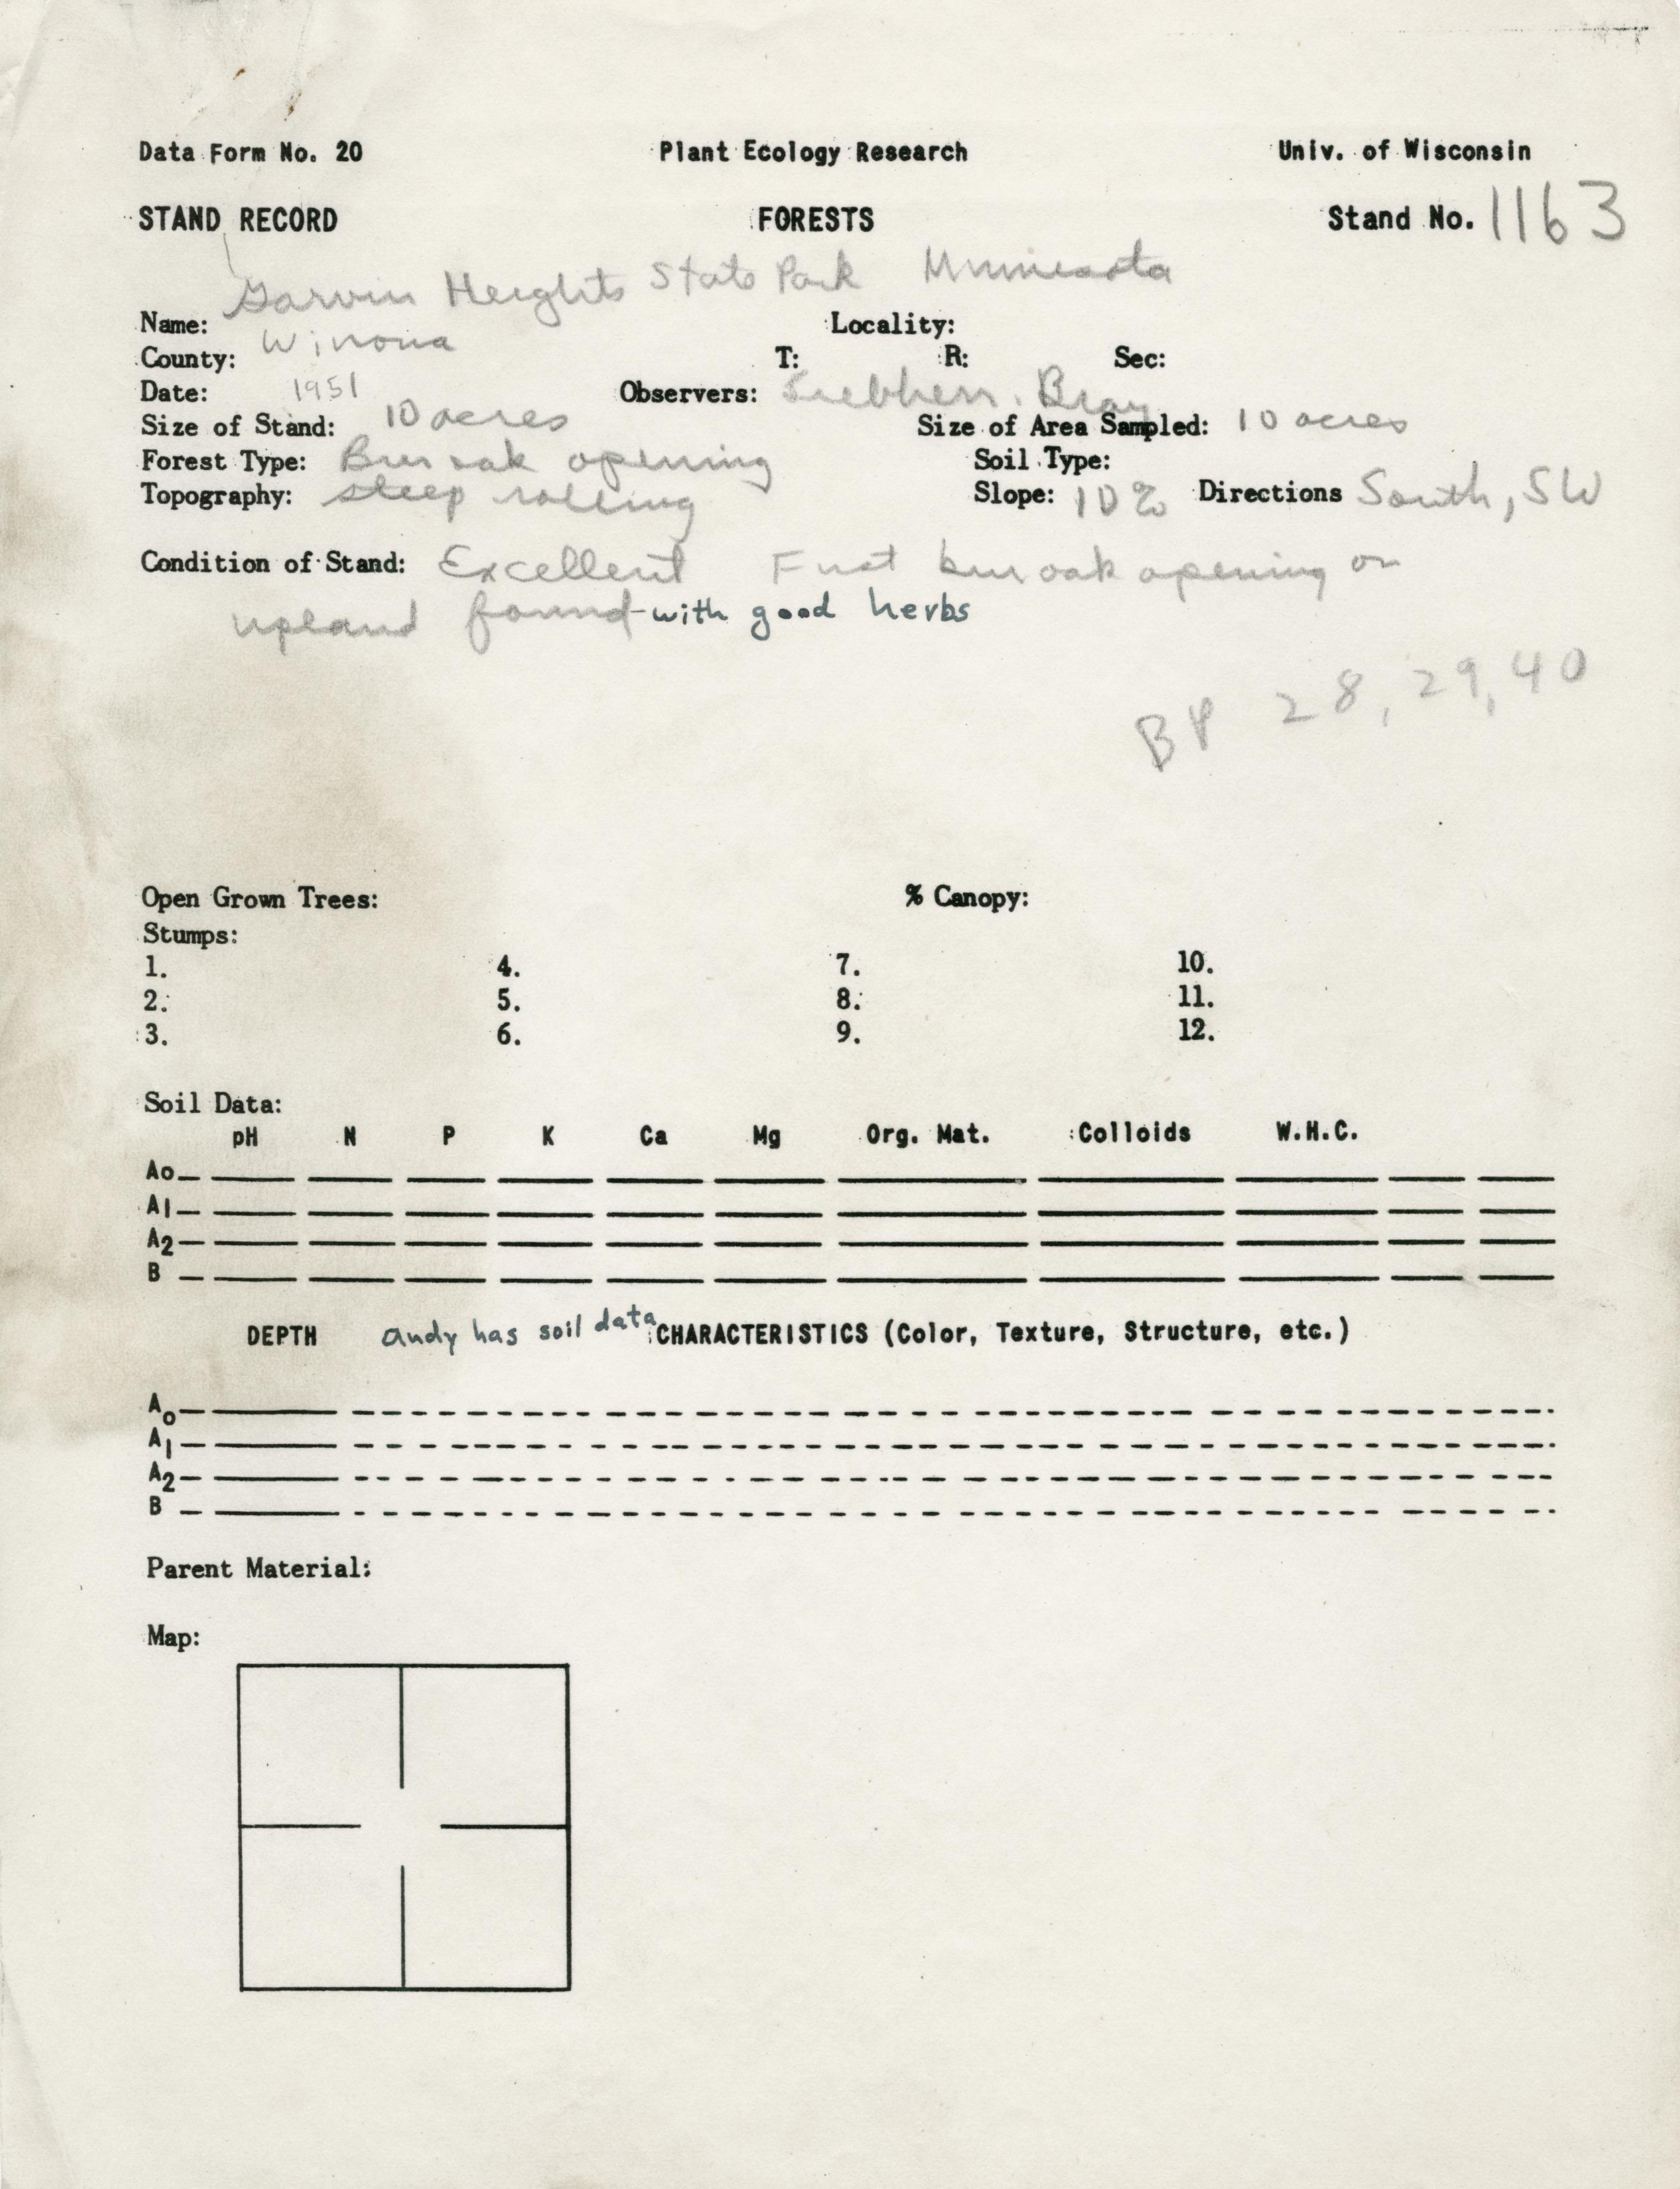 Data Form No. 20 Plant Ecology Research Univ. of Wisconsin
STAND RECORD FORESTS Stand No. 1163
Garvin Heights State Park Minnesota
Name: Locality:
County: Winona T: R: Sec:
Date: 1951 Observers: Bray
Size of Stand: 10 acres Size of Area Sampled: 10 acres
Forest Type: Bur oak opening Soil Type:
Topography: steep rolling Slope: 10% Directions South, SW
Condition of Stand: Excellent First bur oak opening on
upland found-with good herbs
BP 28, 29, 40
Open Grown Trees: % Canopy:
Stumps:
1. 4. 7. 10.
2. 5. 8. 11.
3. 6. 9. 12.
Soil Data:
pH N P K Ca Mg Org. Mat. Colloids W.H.C.
Ao
A1
A2
B
DEPTH Andy has soil data CHARACTERISTICS (Color, Texture, Structure, etc.)
Ao
A1
A2
B
Parent Material:
Map: